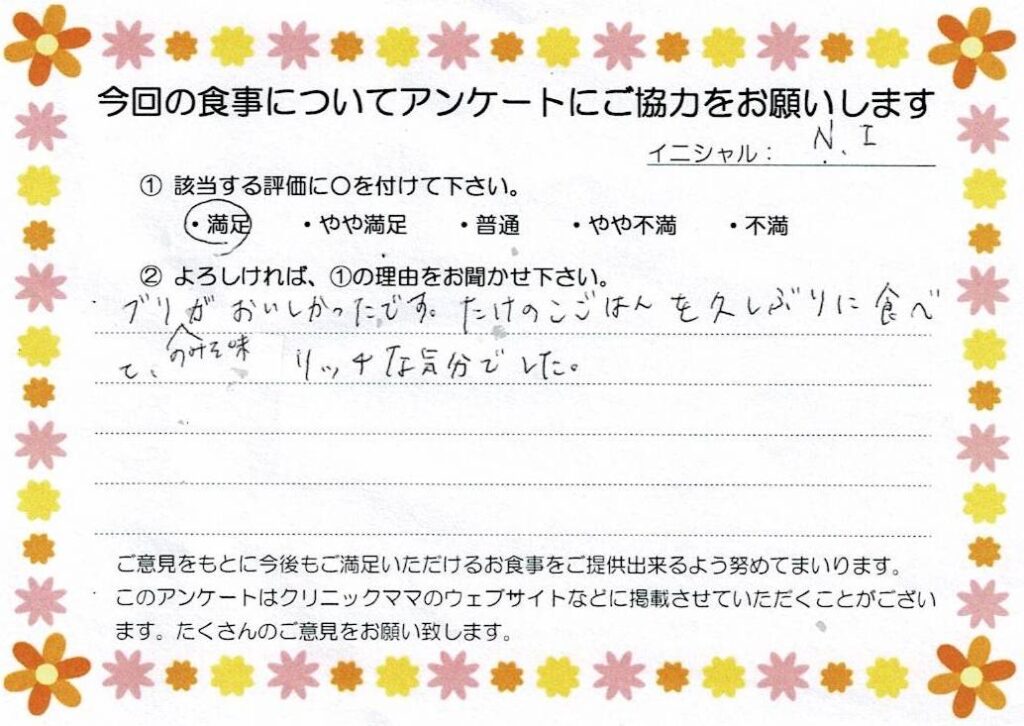 今回の食事についてアンケートにご協力をお願いします
イニシャル： N. I
① 該当する評価に〇を付けて下さい。
・満足 ・やや満足 ・普通 ・やや不満 ・不満
② よろしければ、①の理由をお聞かせ下さい。
ブリがおいしかったです。たけのこごはんを久しぶりに食べ
のみそ味
て、リッチな気分でした。
ご意見をもとに今後もご満足いただけるお食事をご提供出来るよう努めてまいります。
このアンケートはクリニックママのウェブサイトなどに掲載させていただくことがござい
ます。たくさんのご意見をお願い致します。